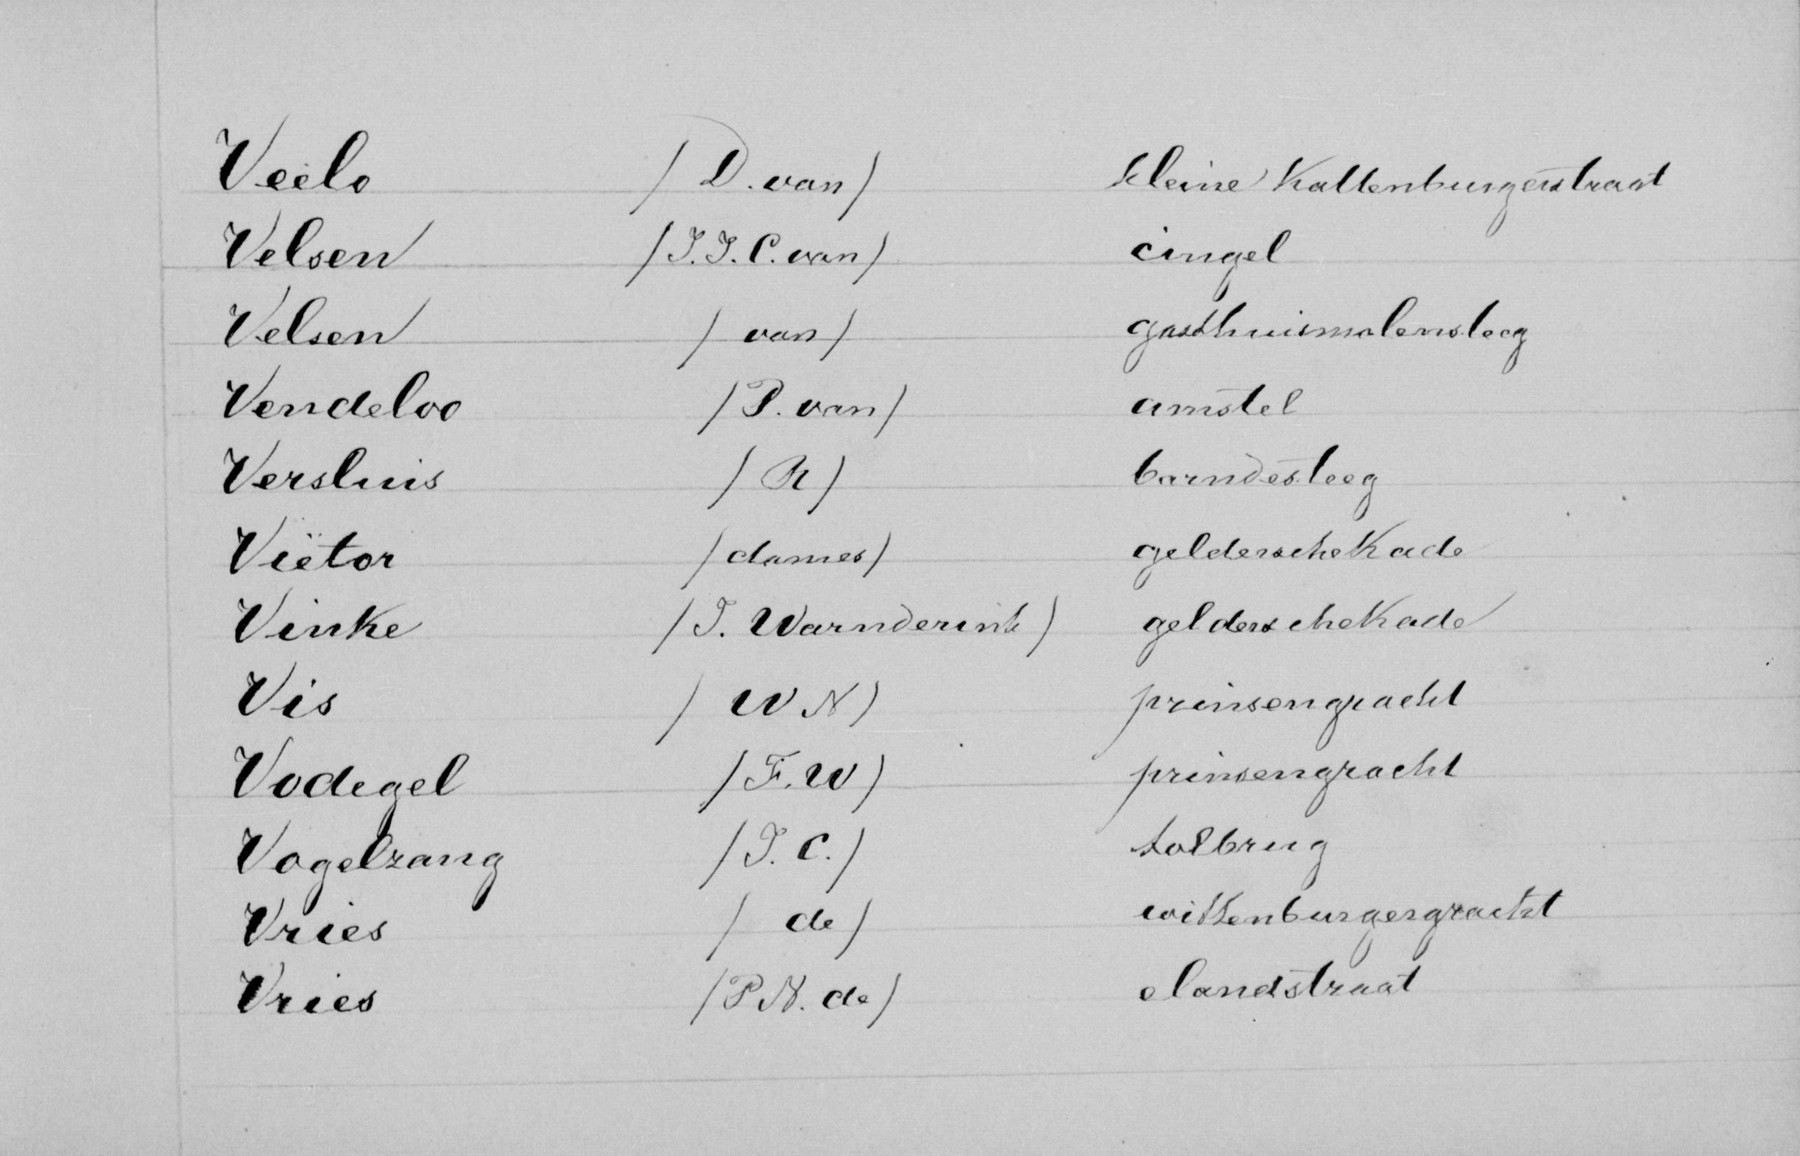 Veëlo (D. van) kleine Kattenburgerstraat
Velsen (J. J. C. van) cingel
Velsen (van) gasthuismolensteeg
Vendeloo (P. van) amstel
Versluis (R) barndesteeg
Viëtor (dames) gelderscheKade
Vinke (J. Warnderink) gelderscheKade
Vis (W N) prinsengracht
Vodegel (F. W) prinsengracht
Vogelzang (J. C.) tolbrug
Vries (de) wittenburgergracht
Vries (P N. de) elandstraat